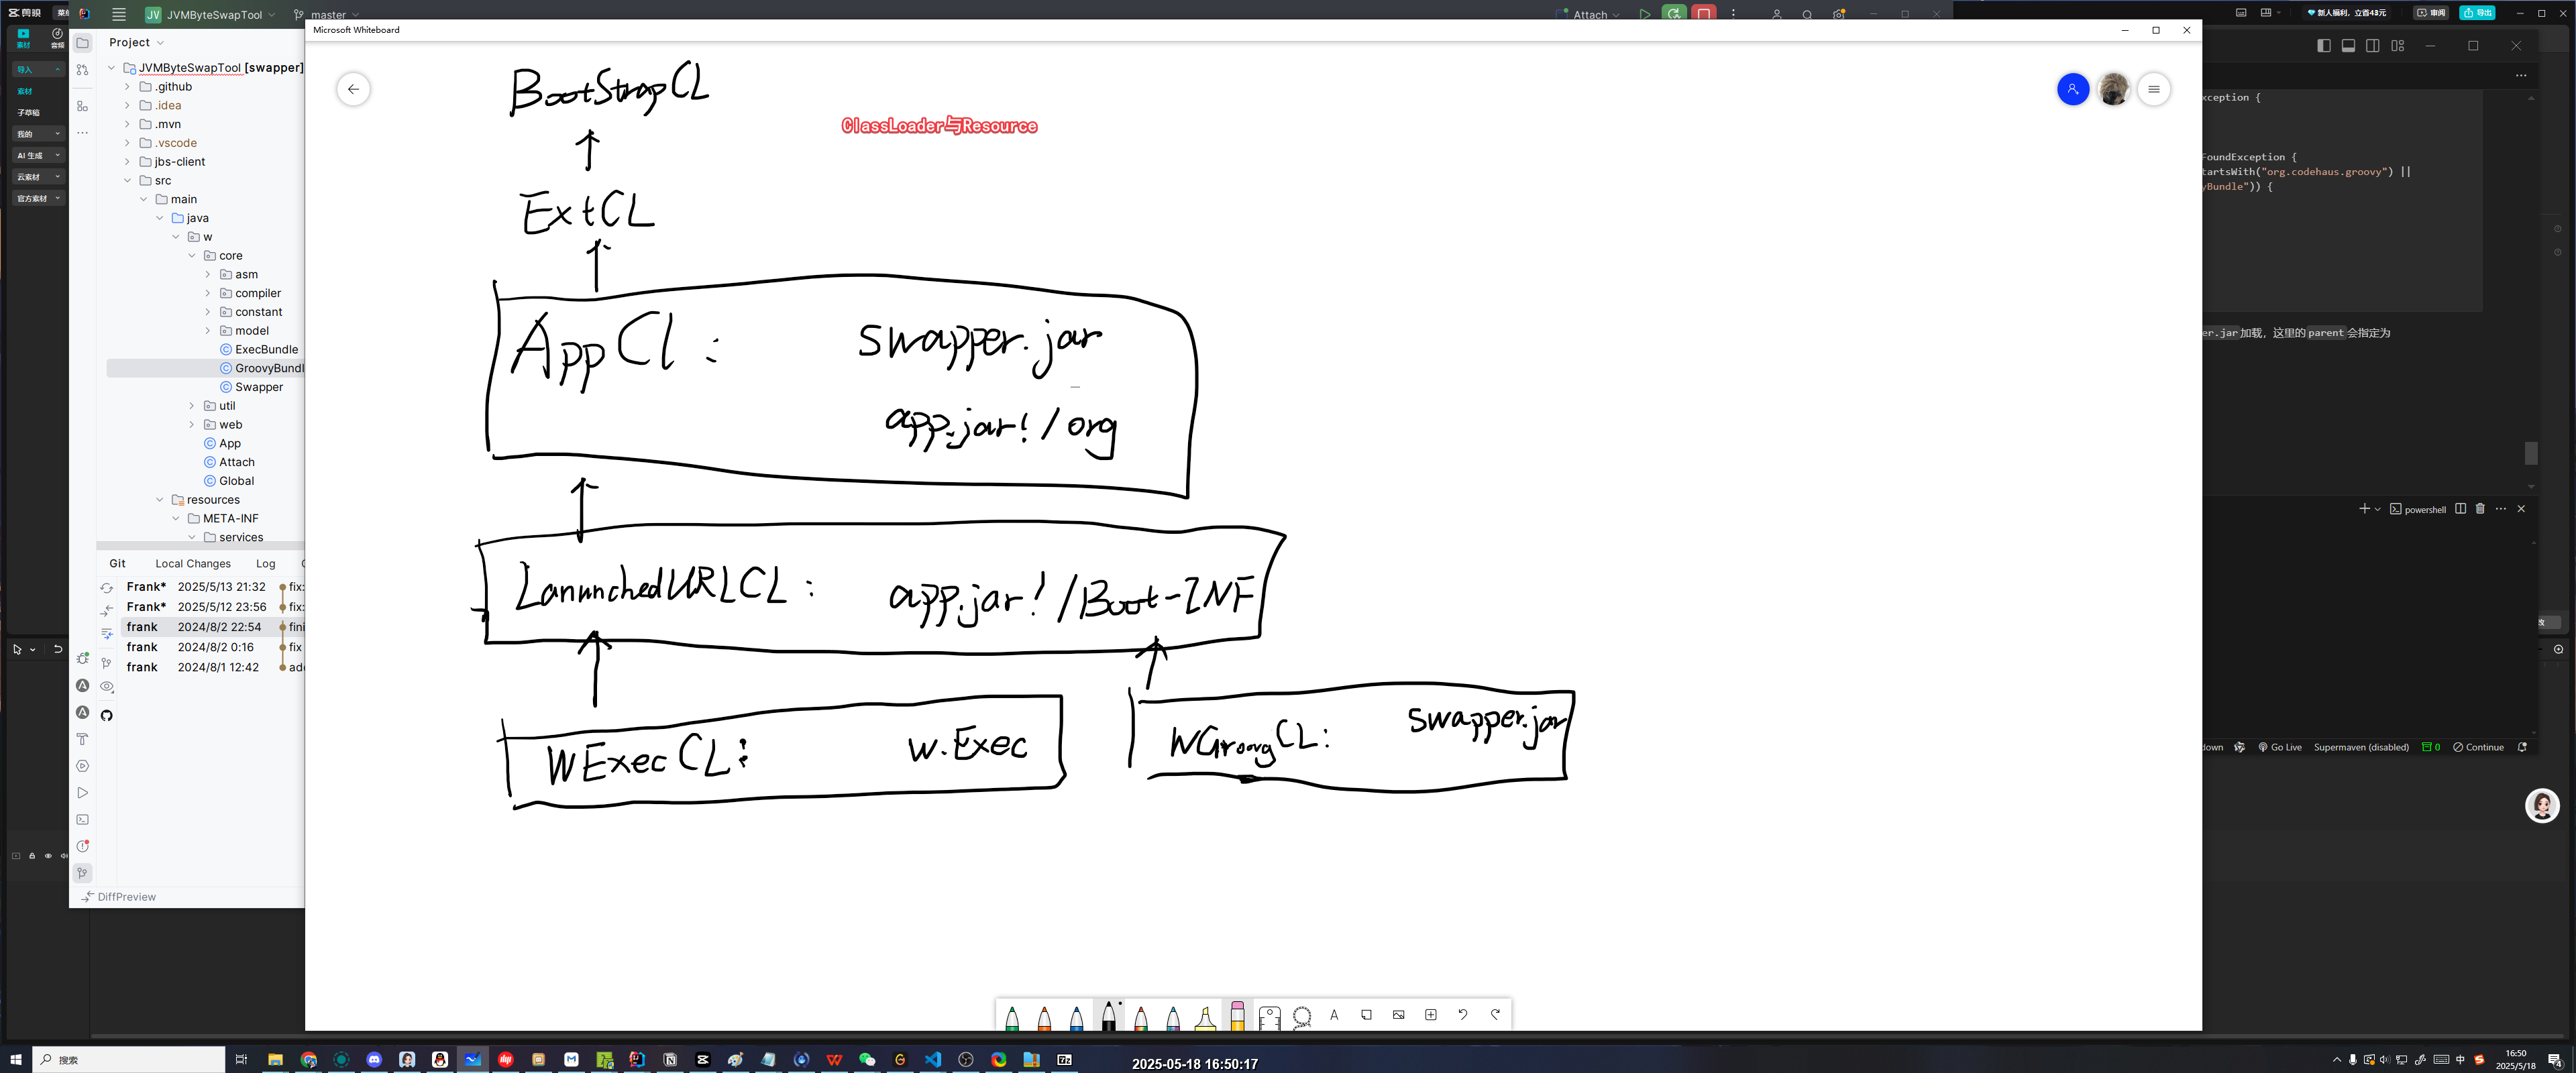 剪映
菜单
JV JVMByteSwapTool
master
Attach
新人福利，立省43元
审阅
导出
素材
音频
导入
素材
子草稿
我的
AI 生成
云素材
官方素材
Project
JVMByteSwapTool [swapper]
.github
.idea
.mvn
.vscode
jbs-client
src
main
java
w
core
asm
compiler
constant
model
ExecBundle
GroovyBundl
Swapper
util
web
App
Attach
Global
resources
META-INF
services
Git
Local Changes
Log
Frank* 2025/5/13 21:32 fix:
Frank* 2025/5/12 23:56 fix:
frank 2024/8/2 22:54 fini
frank 2024/8/2 0:16 fix
frank 2024/8/1 12:42 add
DiffPreview
Microsoft Whiteboard
ClassLoader与Resource
BootStrapCL
ExtCL
AppCl : swapper.jar
app.jar!/org
LanunchedURLCL : app.jar!/Boot-INF
WExecCL: w.Exec
WGroovyCL: swapper.jar
xception {
FoundException {
tartsWith("org.codehaus.groovy") ||
yBundle")) {
er.jar加载，这里的parent会指定为
powershell
Go Live
Supermaven (disabled)
0
Continue
搜索
2025-05-18 16:50:17
中
16:50
2025/5/18